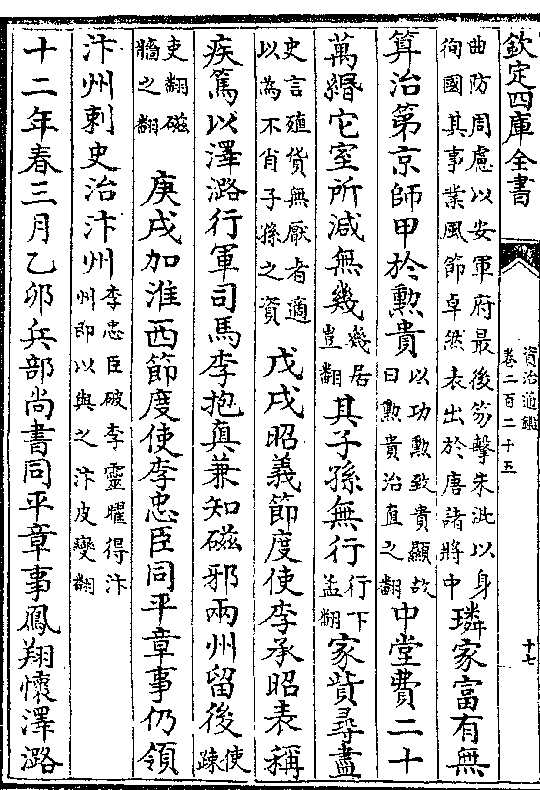 欽定四庫全書
資治通鑑
卷二百二十五
十七
曲防周慮以安軍府最後笏擊朱泚以身
徇國其事業風節卓然表出於唐諸將中
璘家富有無
算治第京師甲於勲貴
以功勲致貴顯故
曰勲貴治直之翻
中堂費二十
萬緡它室所減無幾
幾居
豈翻
其子孫無行
行下
孟翻
家貲尋盡
史言殖貨無厭者適
以為不肖子孫之資
戊戌昭義節度使李承昭表稱
疾篤以澤潞行軍司馬李抱真兼知磁邢兩州留後
使
疎
吏翻磁
牆之翻
庚戌加淮西節度使李忠臣同平章事仍領
汴州刺史治汴州
李忠臣破李靈曜得汴
州即以與之汴皮變翻
十二年春三月乙卯兵部尚書同平章事鳳翔懷澤潞